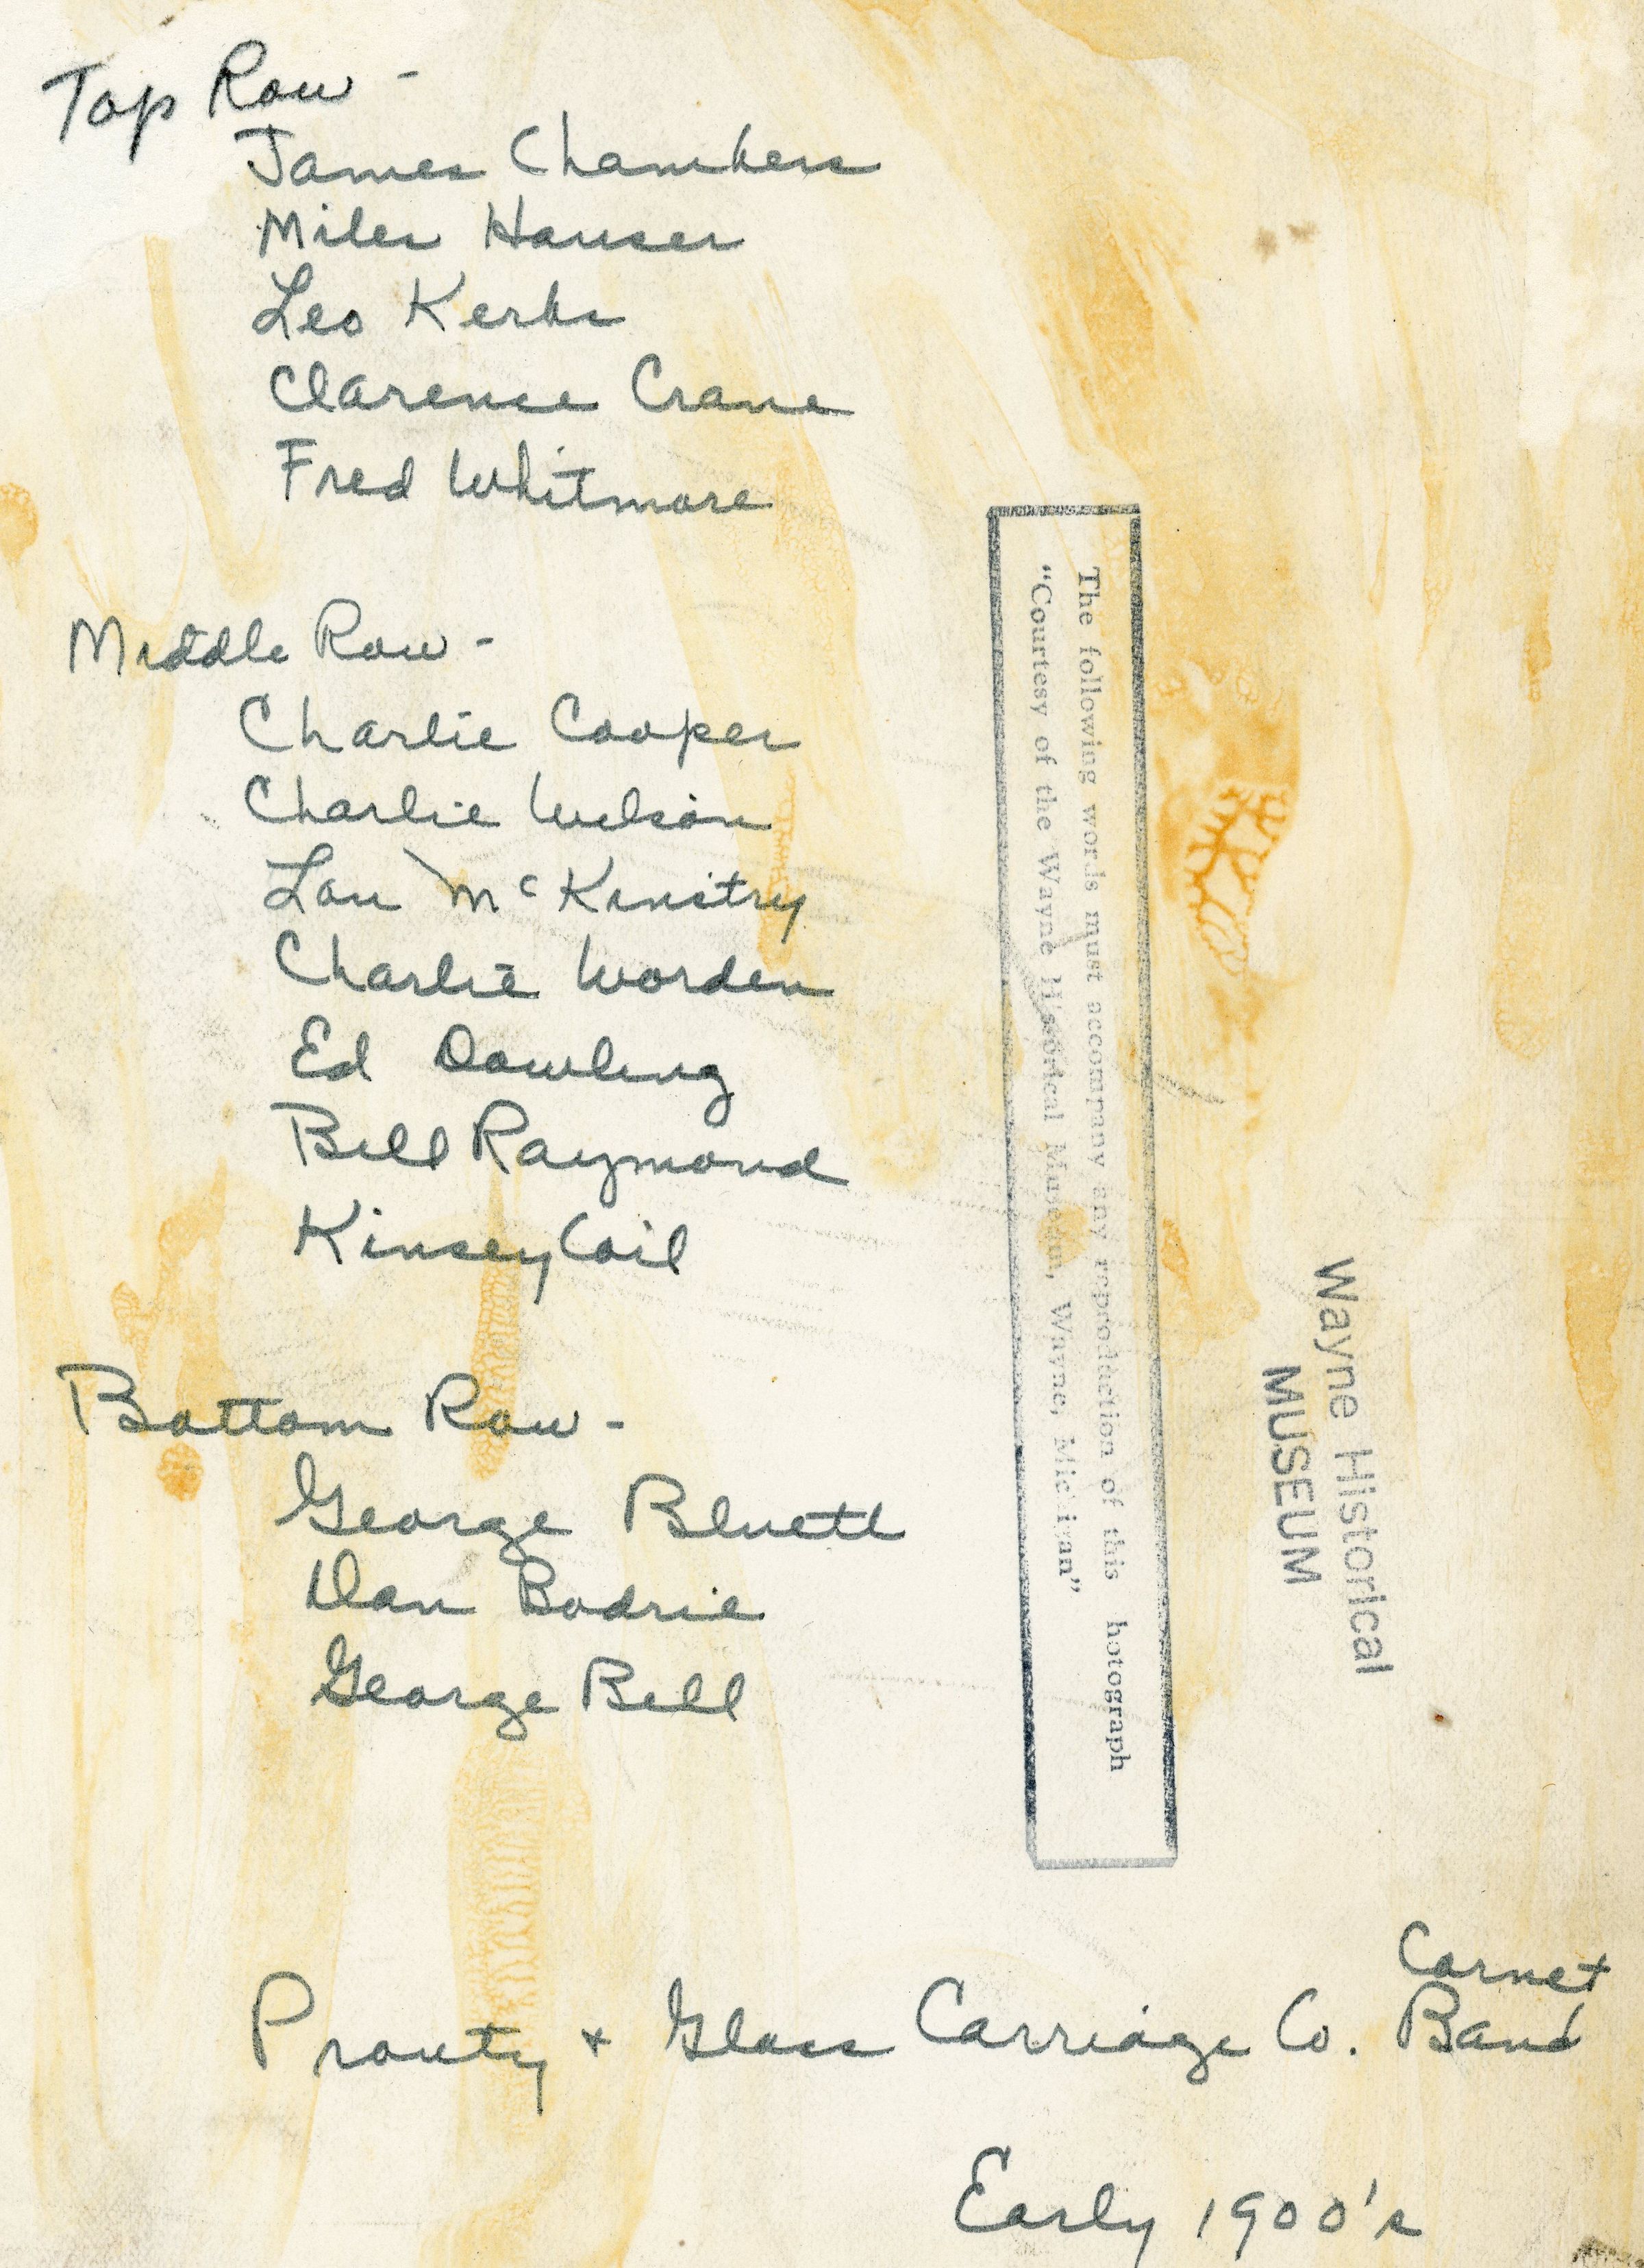 Top Row -
James Chambers
Miles Hauser
Leo Kerbs
Clarence Crane
Fred Whitmore
Middle Row -
Charlie Cooper
Charlie Wilson
Lou McKinstry
Charlie Worden
Ed Dowling
Bill Raymond
Kinsey Cail
Bottom Row -
George Bluett
Dan Bodrie
George Bell
Prouty + Glass Carriage Co. Cornet Band
Early 1900's
The following words must accompany any reproduction of this hotograph
"Courtesy of the Wayne Historical Museum, Wayne, Michigan"
Wayne Historical
MUSEUM